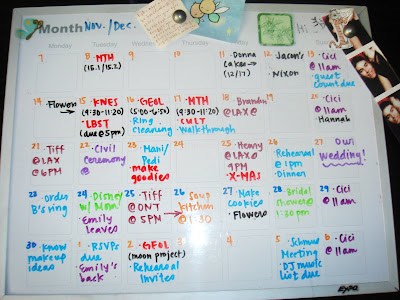 Month Nov./Dec.
Monday
Tuesday
Thursday
Friday
Saturday
7
8 MTH
(15.1/15.2)
9
10
11 ·Donna
(12/17)
12 Jacon's
·Nixon
13 ·Cici
@ 11am
·guest
count due
14 ·Flowers
15 ·KNES
(9:30-11:20)
·LBST
(due @ 5pm)
16 ·GEOL
(5:00-6:50)
·Ring
Cleaning
17 ·MTH
(9:30-11:20)
·CULT
·Walkthrough
18 ·Brandon
@ LAX @
19
20 ·Cici
@ 11am
Hannah
21 ·Tiff
@ LAX
@ 6PM
22 ·Civil
Ceremony
@
23 ·Mani/
Pedi
·make
goodies
24
25 ·Henry
@ LAX @
9PM
X-MAS
26 Rehearsal
@ 1pm
·Dinner
27 ·Our
wedding!
23 ·Order
B's ring
24 ·Disney
w/ Mom
Emily
leaves
25 ·Tiff
@ ONT
@ 5PM
26 Soup
Kitchen
@ 1:30
27 ·Make
cookies
·Flowers
28 ·Bridal
shower @
1:30 pm
29 ·Cici
@ 11am
30 ·Know
makeup
ideas
1 ·RSVPs
due
·Emily's
back
2 ·GEOL
(moon project)
·Rehearsal
Invites
3
4
5 ·Schmus
Meeting
·DJ music
list due
6 ·Cici
@ 11am
EXPO